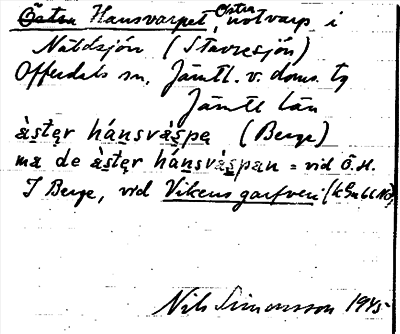 Östra Hansvarpet, Östra notvarp i
Näldsjön (Stavresjön)
Offerdals sn, Jämtl. v. doms. tg
Jämtl län
àste̥r hánsvàs̥pe̥ (Berge)
ma de àste̥r hánsvàs̥pan = vid Ö. H.
I Berge, vid Vikens garfveri
Nils Simonsson 1945